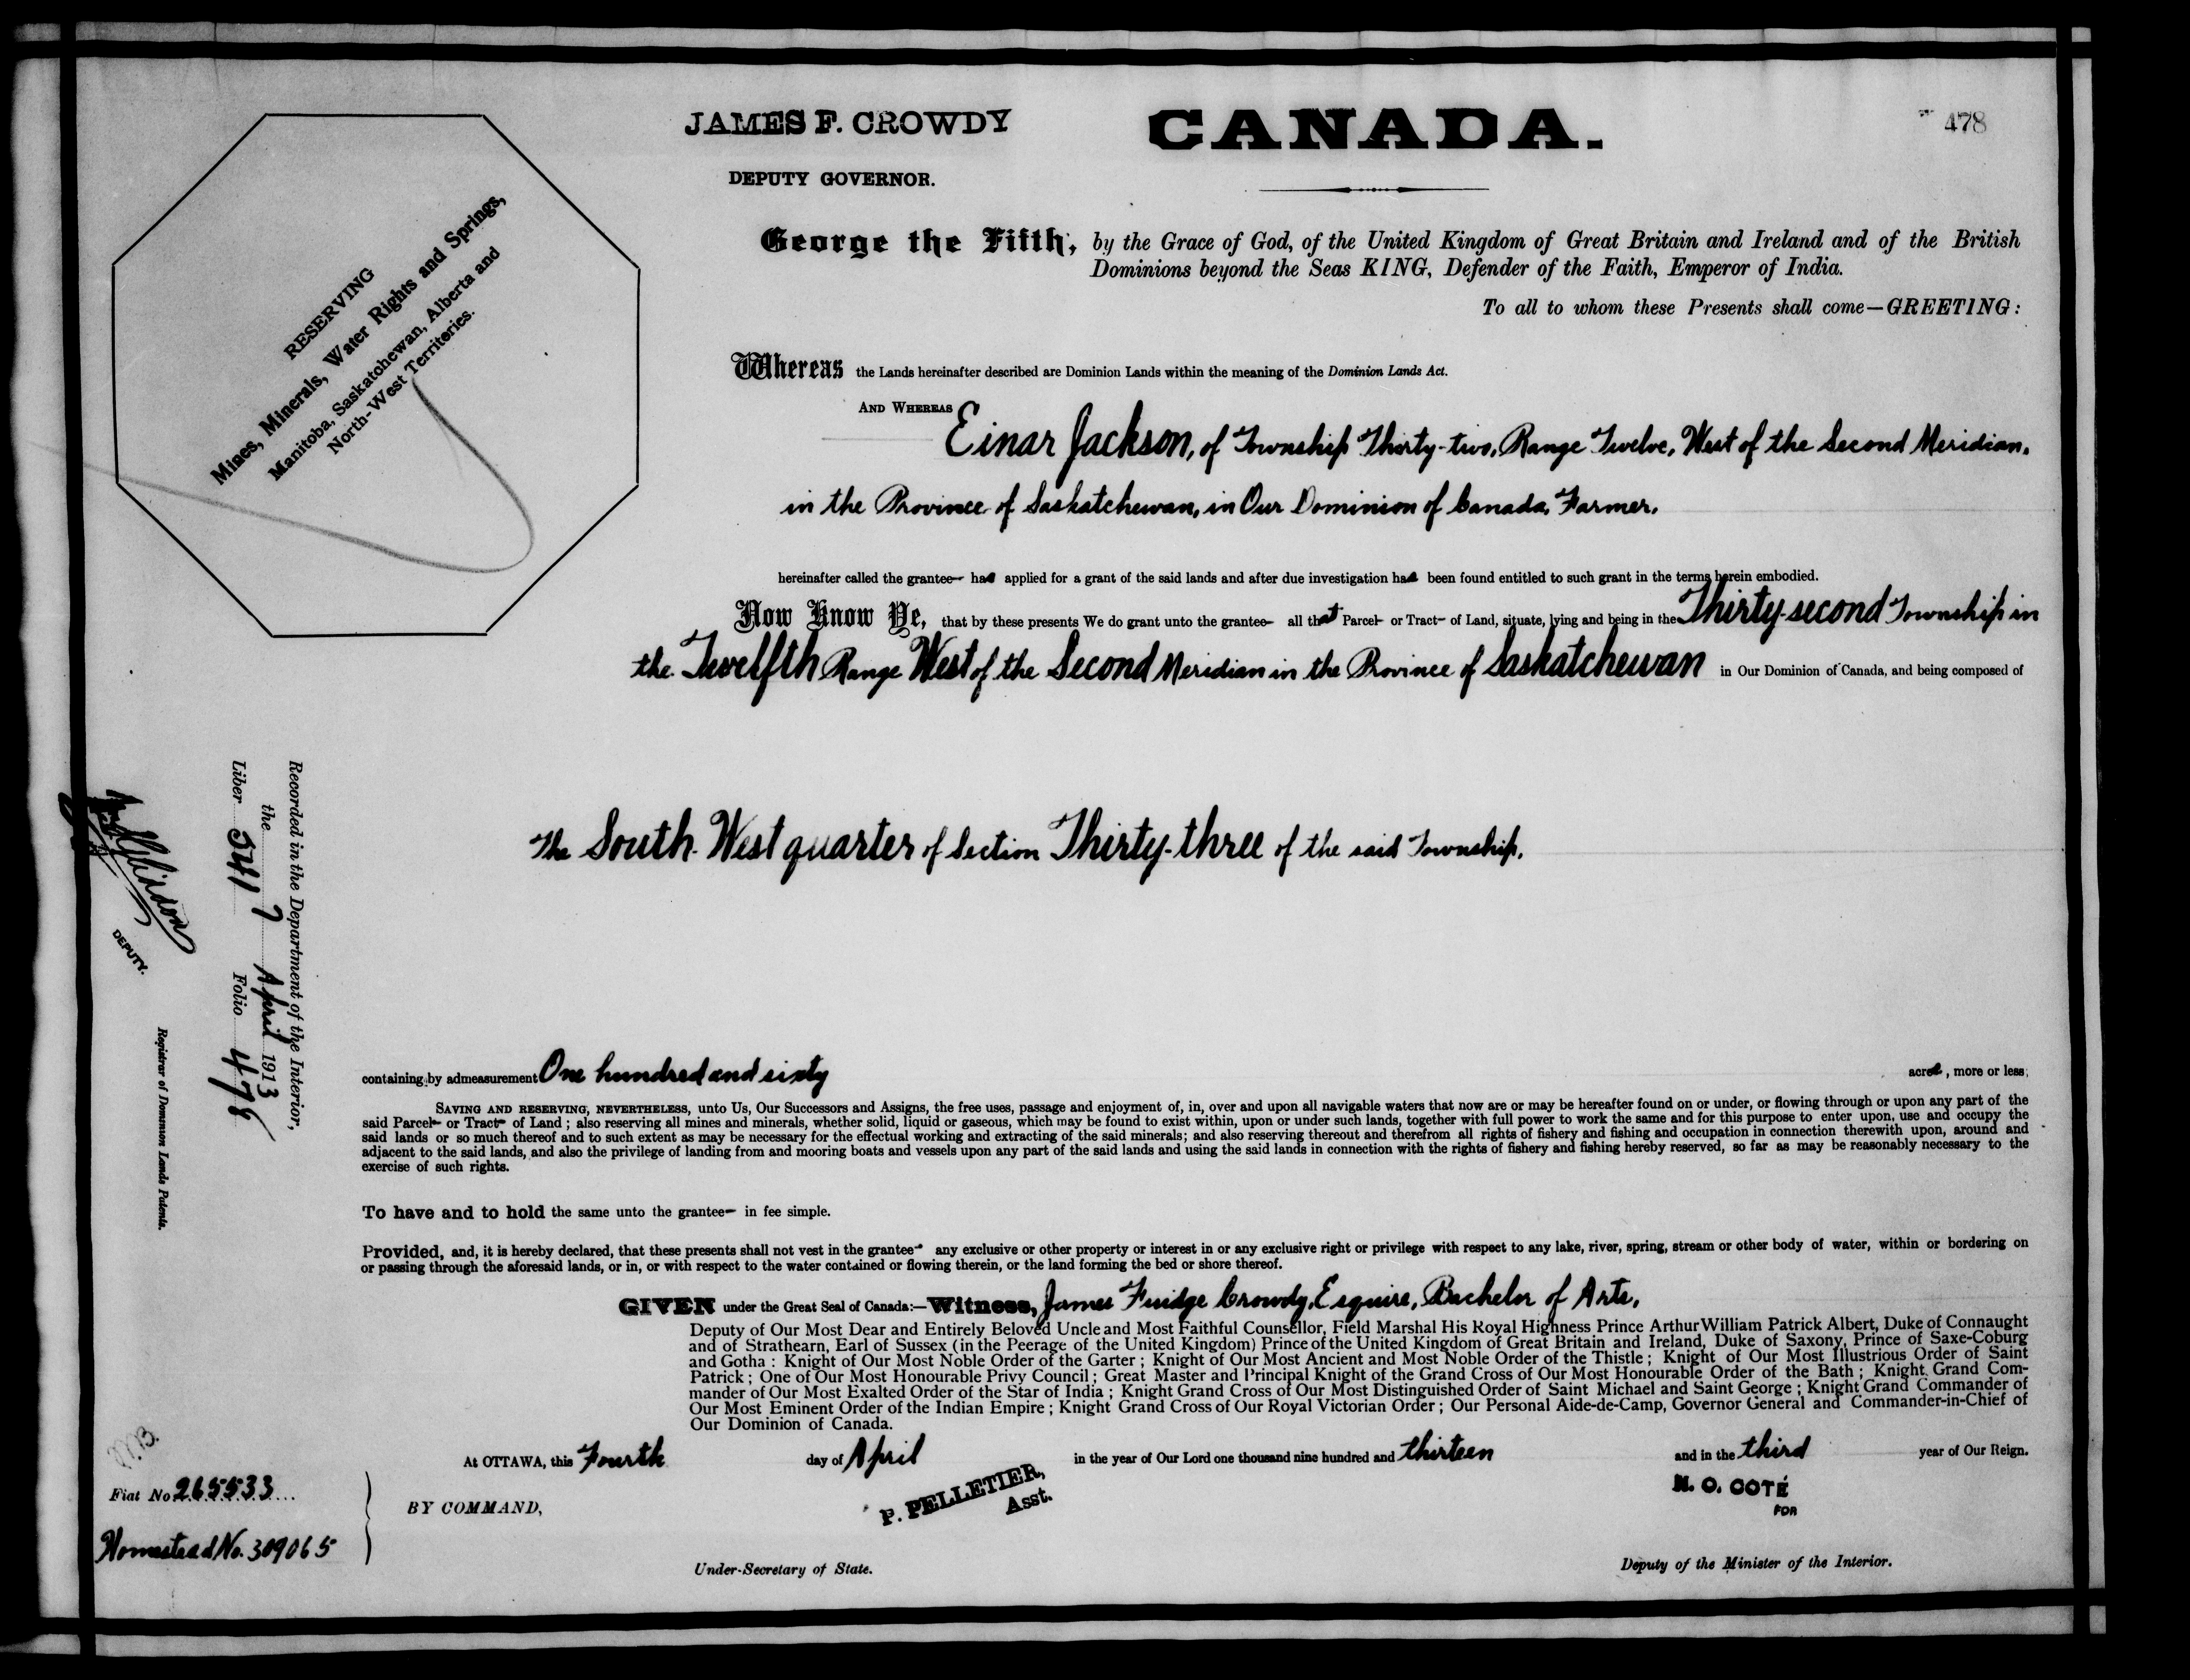 JAMES F. CROWDY
DEPUTY GOVERNOR.
CANADA.
478
RESERVING
Mines, Minerals, Water Rights and Springs,
Manitoba, Saskatchewan, Alberta and
North-West Territories.
George the Fifth, by the Grace of God, of the United Kingdom of Great Britain and Ireland and of the British
Dominions beyond the Seas KING, Defender of the Faith, Emperor of India.
To all to whom these Presents shall come—GREETING:
Whereas the Lands hereinafter described are Dominion Lands within the meaning of the Dominion Lands Act.
AND WHEREAS
Einar Jackson, of Township Thirty-two, Range Twelve, West of the Second Meridian,
in the Province of Saskatchewan, in Our Dominion of Canada, Farmer,
hereinafter called the grantee— has applied for a grant of the said lands and after due investigation has been found entitled to such grant in the terms herein embodied.
Now Know Ye, that by these presents We do grant unto the grantee— all that Parcel— or Tract— of Land, situate, lying and being in the Thirty-second Township in
the Twelfth Range West of the Second Meridian in the Province of Saskatchewan in Our Dominion of Canada, and being composed of
The South West quarter of Section Thirty-three of the said Township,
Recorded in the Department of the Interior,
the 7 April 1913
Liber 541 Folio 478
DEPUTY.
Registrar of Dominion Lands Patents.
containing by admeasurement One hundred and sixty acres, more or less;
SAVING AND RESERVING, NEVERTHELESS, unto Us, Our Successors and Assigns, the free uses, passage and enjoyment of, in, over and upon all navigable waters that now are or may be hereafter found on or under, or flowing through or upon any part of the
said Parcel— or Tract— of Land; also reserving all mines and minerals, whether solid, liquid or gaseous, which may be found to exist within, upon or under such lands, together with full power to work the same and for this purpose to enter upon, use and occupy the
said lands or so much thereof and to such extent as may be necessary for the effectual working and extracting of the said minerals; and also reserving thereout and therefrom all rights of fishery and fishing and occupation in connection therewith upon, around and
adjacent to the said lands, and also the privilege of landing from and mooring boats and vessels upon any part of the said lands and using the said lands in connection with the rights of fishery and fishing hereby reserved, so far as may be reasonably necessary to the
exercise of such rights.
To have and to hold the same unto the grantee— in fee simple.
Provided, and, it is hereby declared, that these presents shall not vest in the grantee— any exclusive or other property or interest in or any exclusive right or privilege with respect to any lake, river, spring, stream or other body of water, within or bordering on
or passing through the aforesaid lands, or in, or with respect to the water contained or flowing therein, or the land forming the bed or shore thereof.
GIVEN under the Great Seal of Canada:—Witness, James Fuidge Crowdy, Esquire, Bachelor of Arts,
Deputy of Our Most Dear and Entirely Beloved Uncle and Most Faithful Counsellor, Field Marshal His Royal Highness Prince Arthur William Patrick Albert, Duke of Connaught
and of Strathearn, Earl of Sussex (in the Peerage of the United Kingdom) Prince of the United Kingdom of Great Britain and Ireland, Duke of Saxony, Prince of Saxe-Coburg
and Gotha: Knight of Our Most Noble Order of the Garter; Knight of Our Most Ancient and Most Noble Order of the Thistle; Knight of Our Most Illustrious Order of Saint
Patrick; One of Our Most Honourable Privy Council; Great Master and Principal Knight of the Grand Cross of Our Most Honourable Order of the Bath; Knight Grand Com-
mander of Our Most Exalted Order of the Star of India; Knight Grand Cross of Our Most Distinguished Order of Saint Michael and Saint George; Knight Grand Commander of
Our Most Eminent Order of the Indian Empire; Knight Grand Cross of Our Royal Victorian Order; Our Personal Aide-de-Camp, Governor General and Commander-in-Chief of
Our Dominion of Canada.
At OTTAWA, this Fourth day of April in the year of Our Lord one thousand nine hundred and thirteen and in the third year of Our Reign.
Fiat No 265533
Homestead No. 309065
BY COMMAND,
P. PELLETIER,
Asst.
Under-Secretary of State.
N. O. COTÉ
FOR
Deputy of the Minister of the Interior.